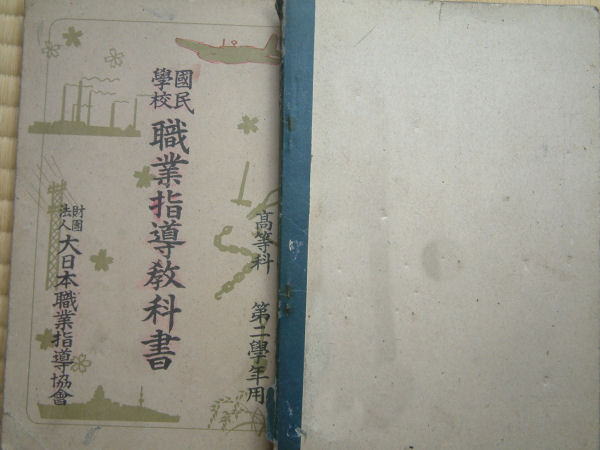 高等科 第二學年用
國民
學校
職業指導敎科書
財團
法人
大日本職業指導協會